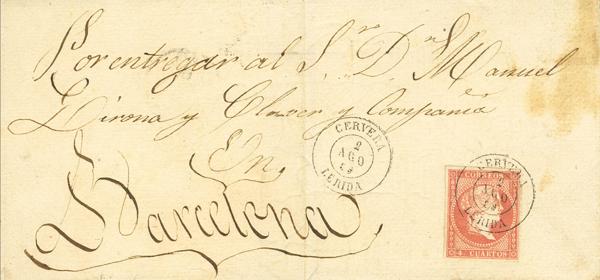 Por entregar al S.r D.n Manuel
Girona y Claver y Compania
En,
Barcelona
CERVERA
2
AGO
LERIDA
CERVERA
2
AGO
LERIDA
CORREOS
4 CUARTOS